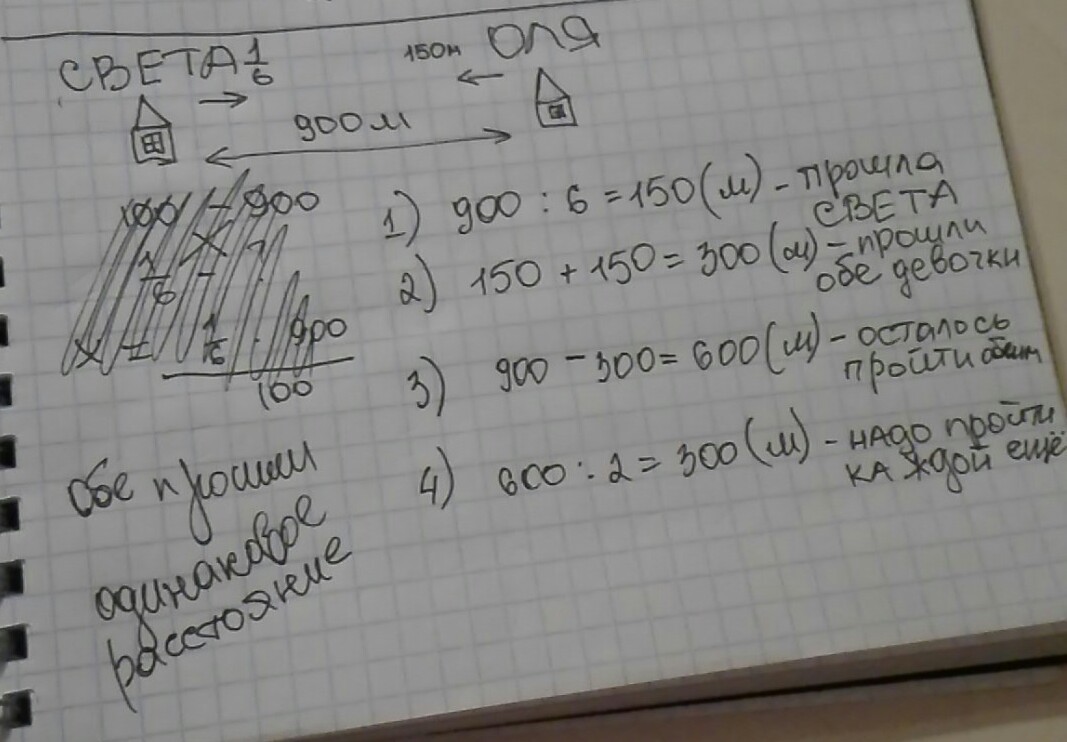 СВЕТА 1/6
150м ОЛЯ
900м
900
1) 900 : 6 = 150 (м) - прошла
СВЕТА
2) 150 + 150 = 300 (м) - прошли
обе девочки
1/6
900
100
3) 900 - 300 = 600 (м) - осталось
пройти обеим
4) 600 : 2 = 300 (м) - надо пройти
каждой ещё
обе прошли
одинаковое
расстояние